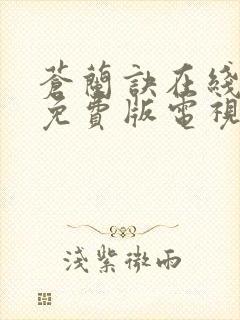 蒼蘭訣在綫
免費版電視
淺紫微雨